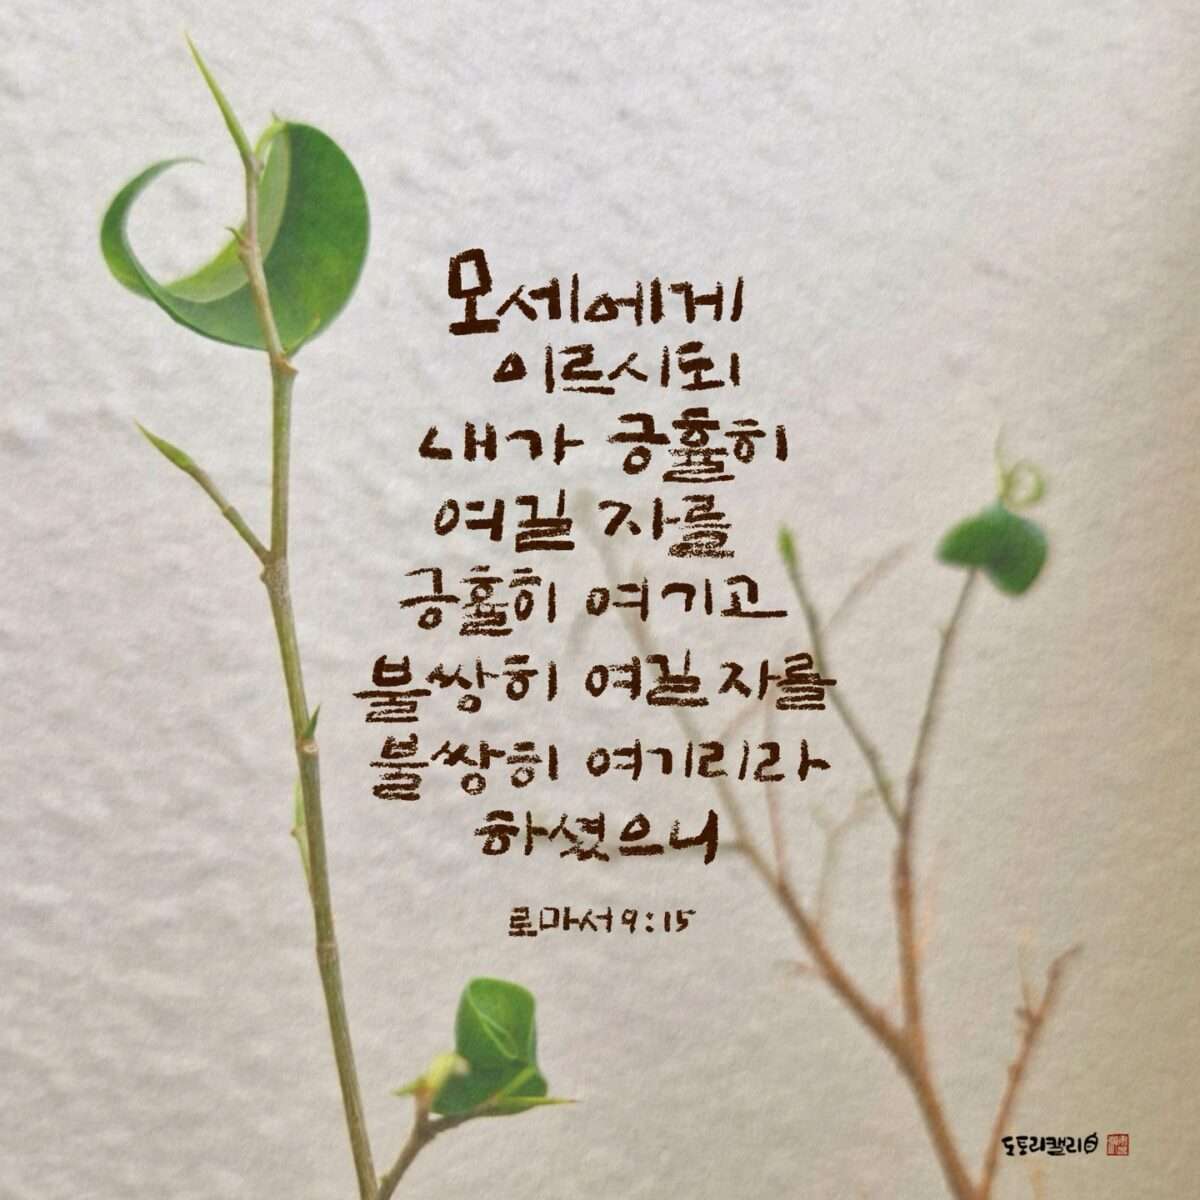 모세에게
이르시되
내가 긍휼히
여길 자를
긍휼히 여기고
불쌍히 여길 자를
불쌍히 여기리라
하셨으니
로마서 9:15
도토리캘리